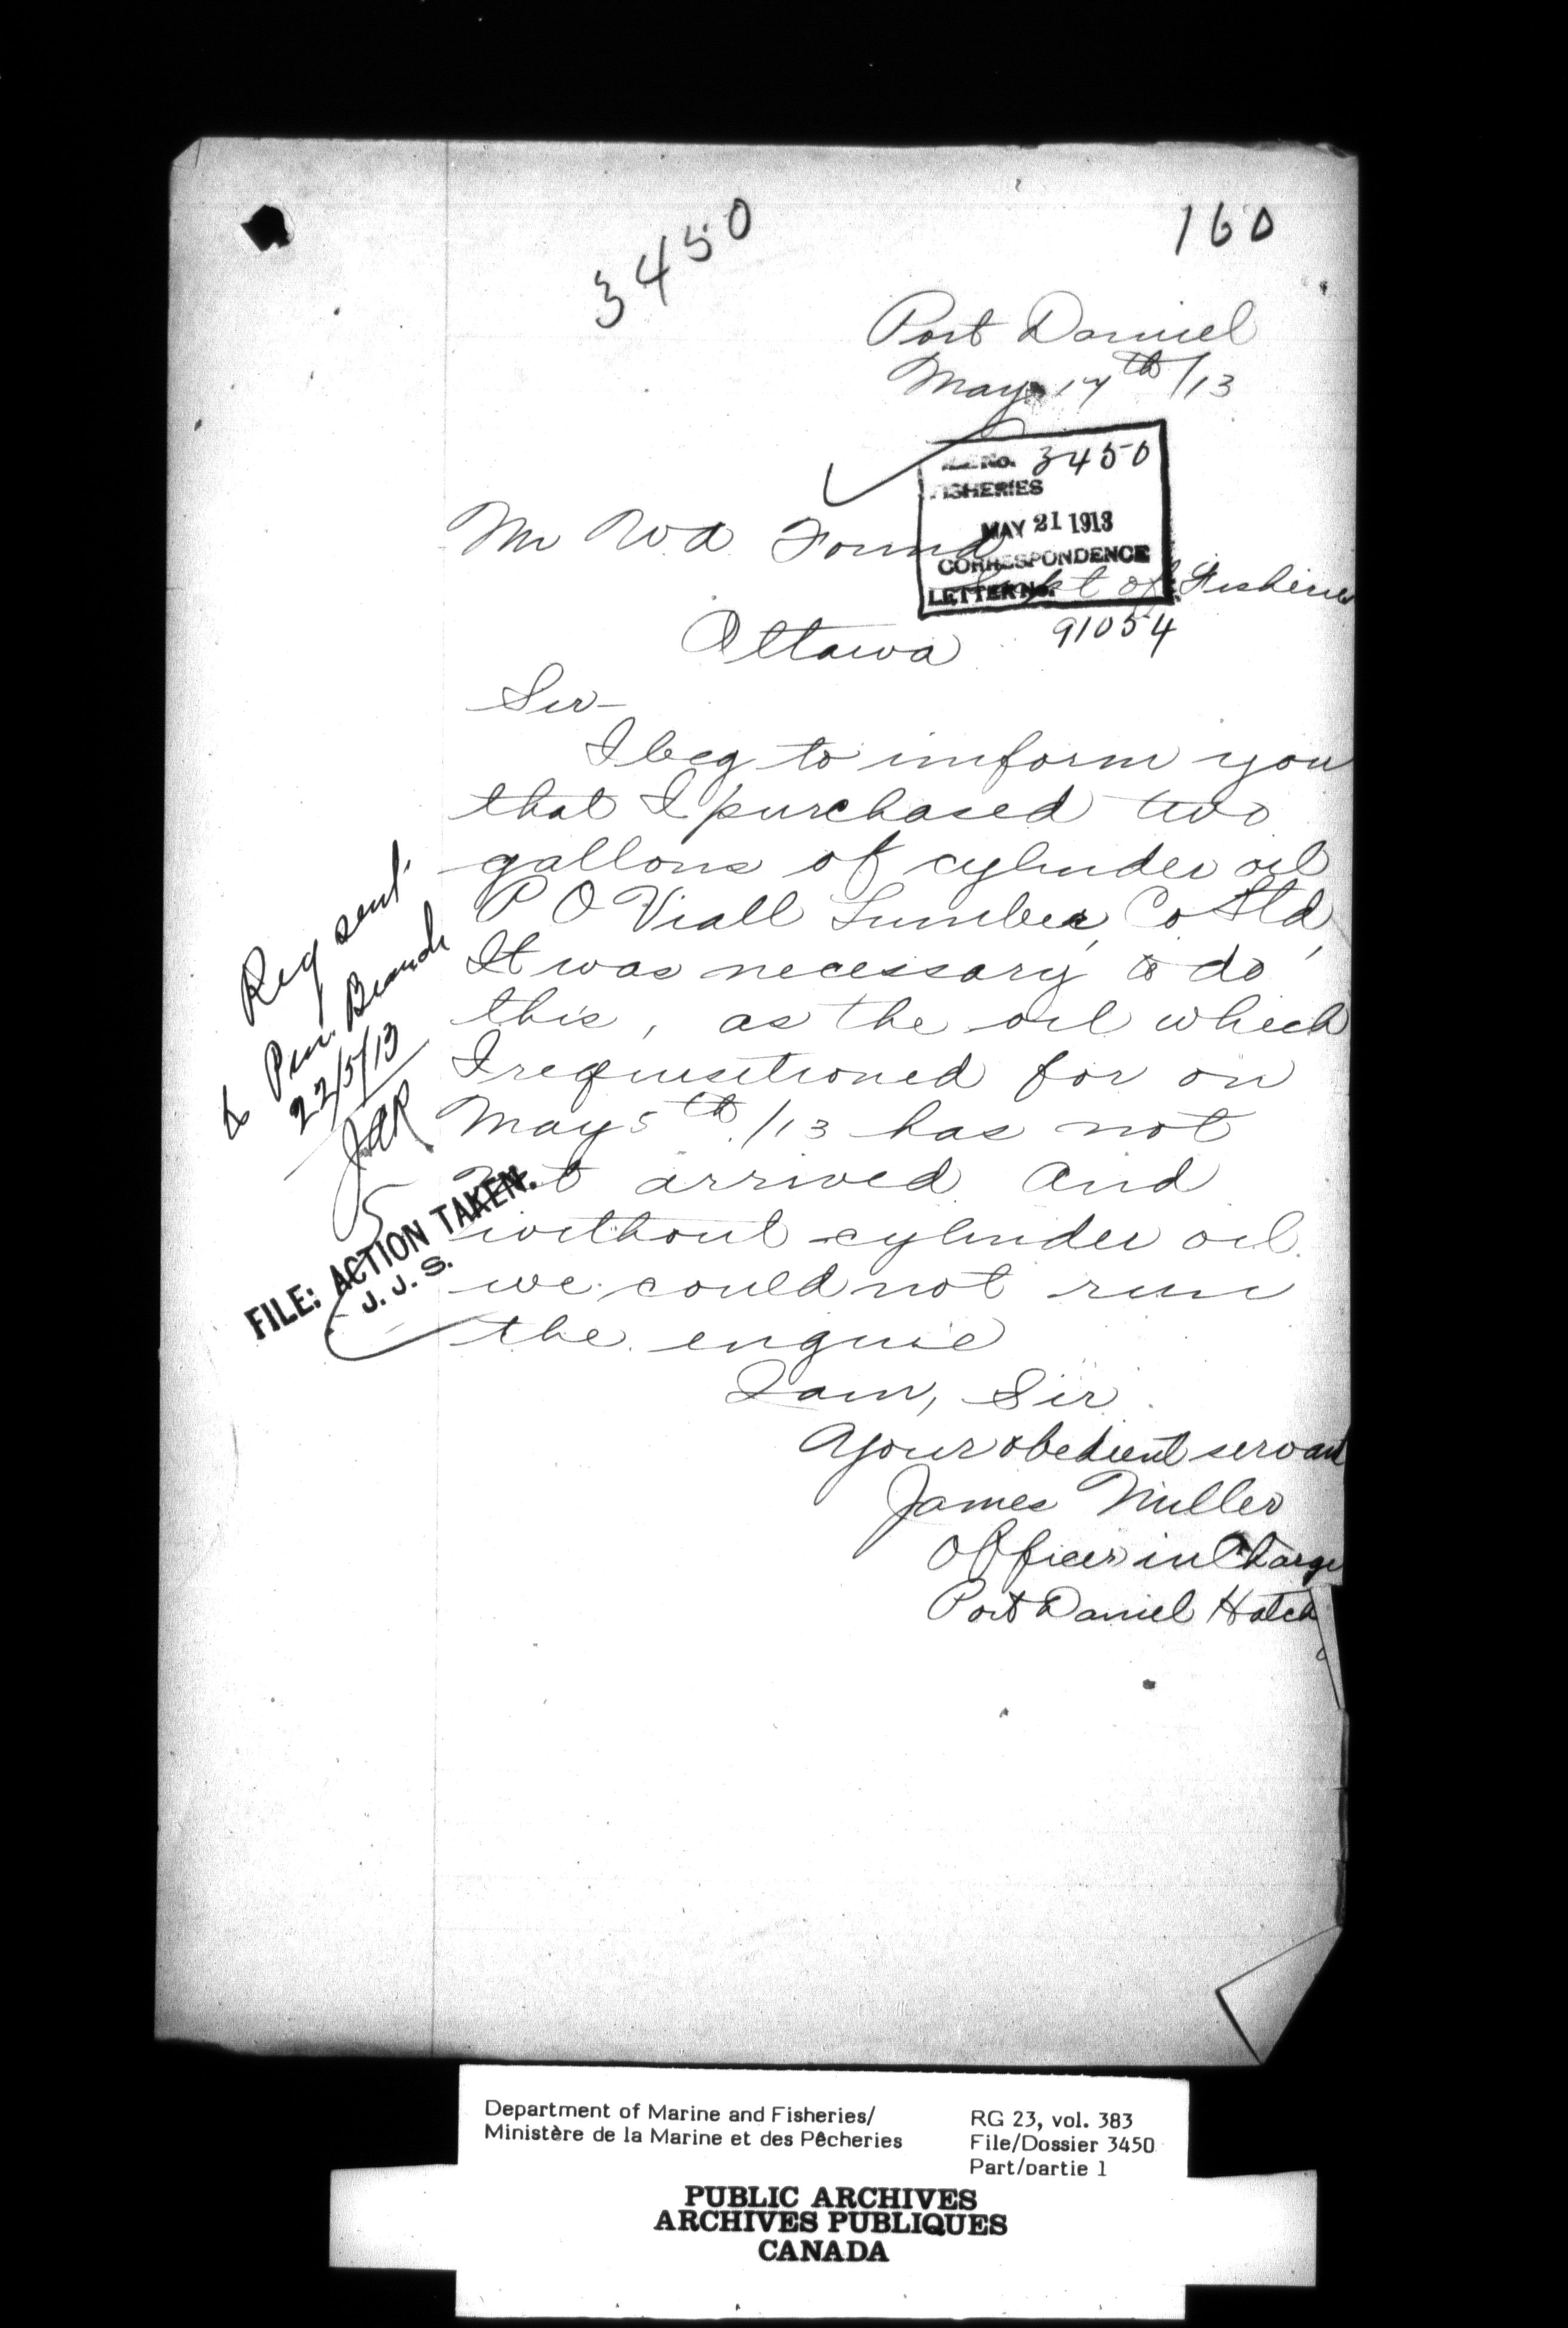 3450
160
Port Daniel
May 17th/13
FILE No. 3450
FISHERIES
MAY 21 1913
CORRESPONDENCE
LETTER No.
91054
Mr W.A. Found
Supt of Fisheries
Ottawa
Sir-
I beg to inform you
that I purchased two
gallons of cylinder oil
P O Viall Lumber, Co Ltd,
It was necessary to do
this, as the oil which
I requisitioned for on
May 5th/13 has not
arrived and
without cylinder oil
we could not run
the engine
I am, Sir
Your obedient servant
James Miller
Officer in Charge
Port Daniel Hatch
Req sent
to Pur. Branch
22/5/13
JAR
FILE: ACTION TAKEN.
J. J. S.
Department of Marine and Fisheries/
Ministère de la Marine et des Pêcheries
RG 23, vol. 383
File/Dossier 3450
Part/partie 1
PUBLIC ARCHIVES
ARCHIVES PUBLIQUES
CANADA